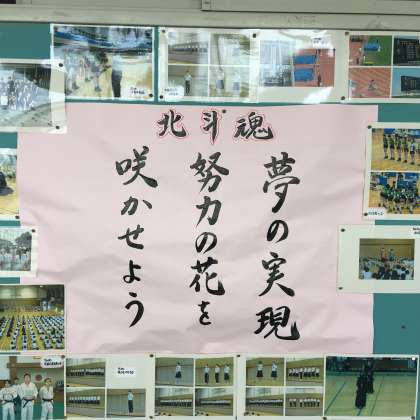 北斗魂
夢の実現
努力の花を
咲かせよう